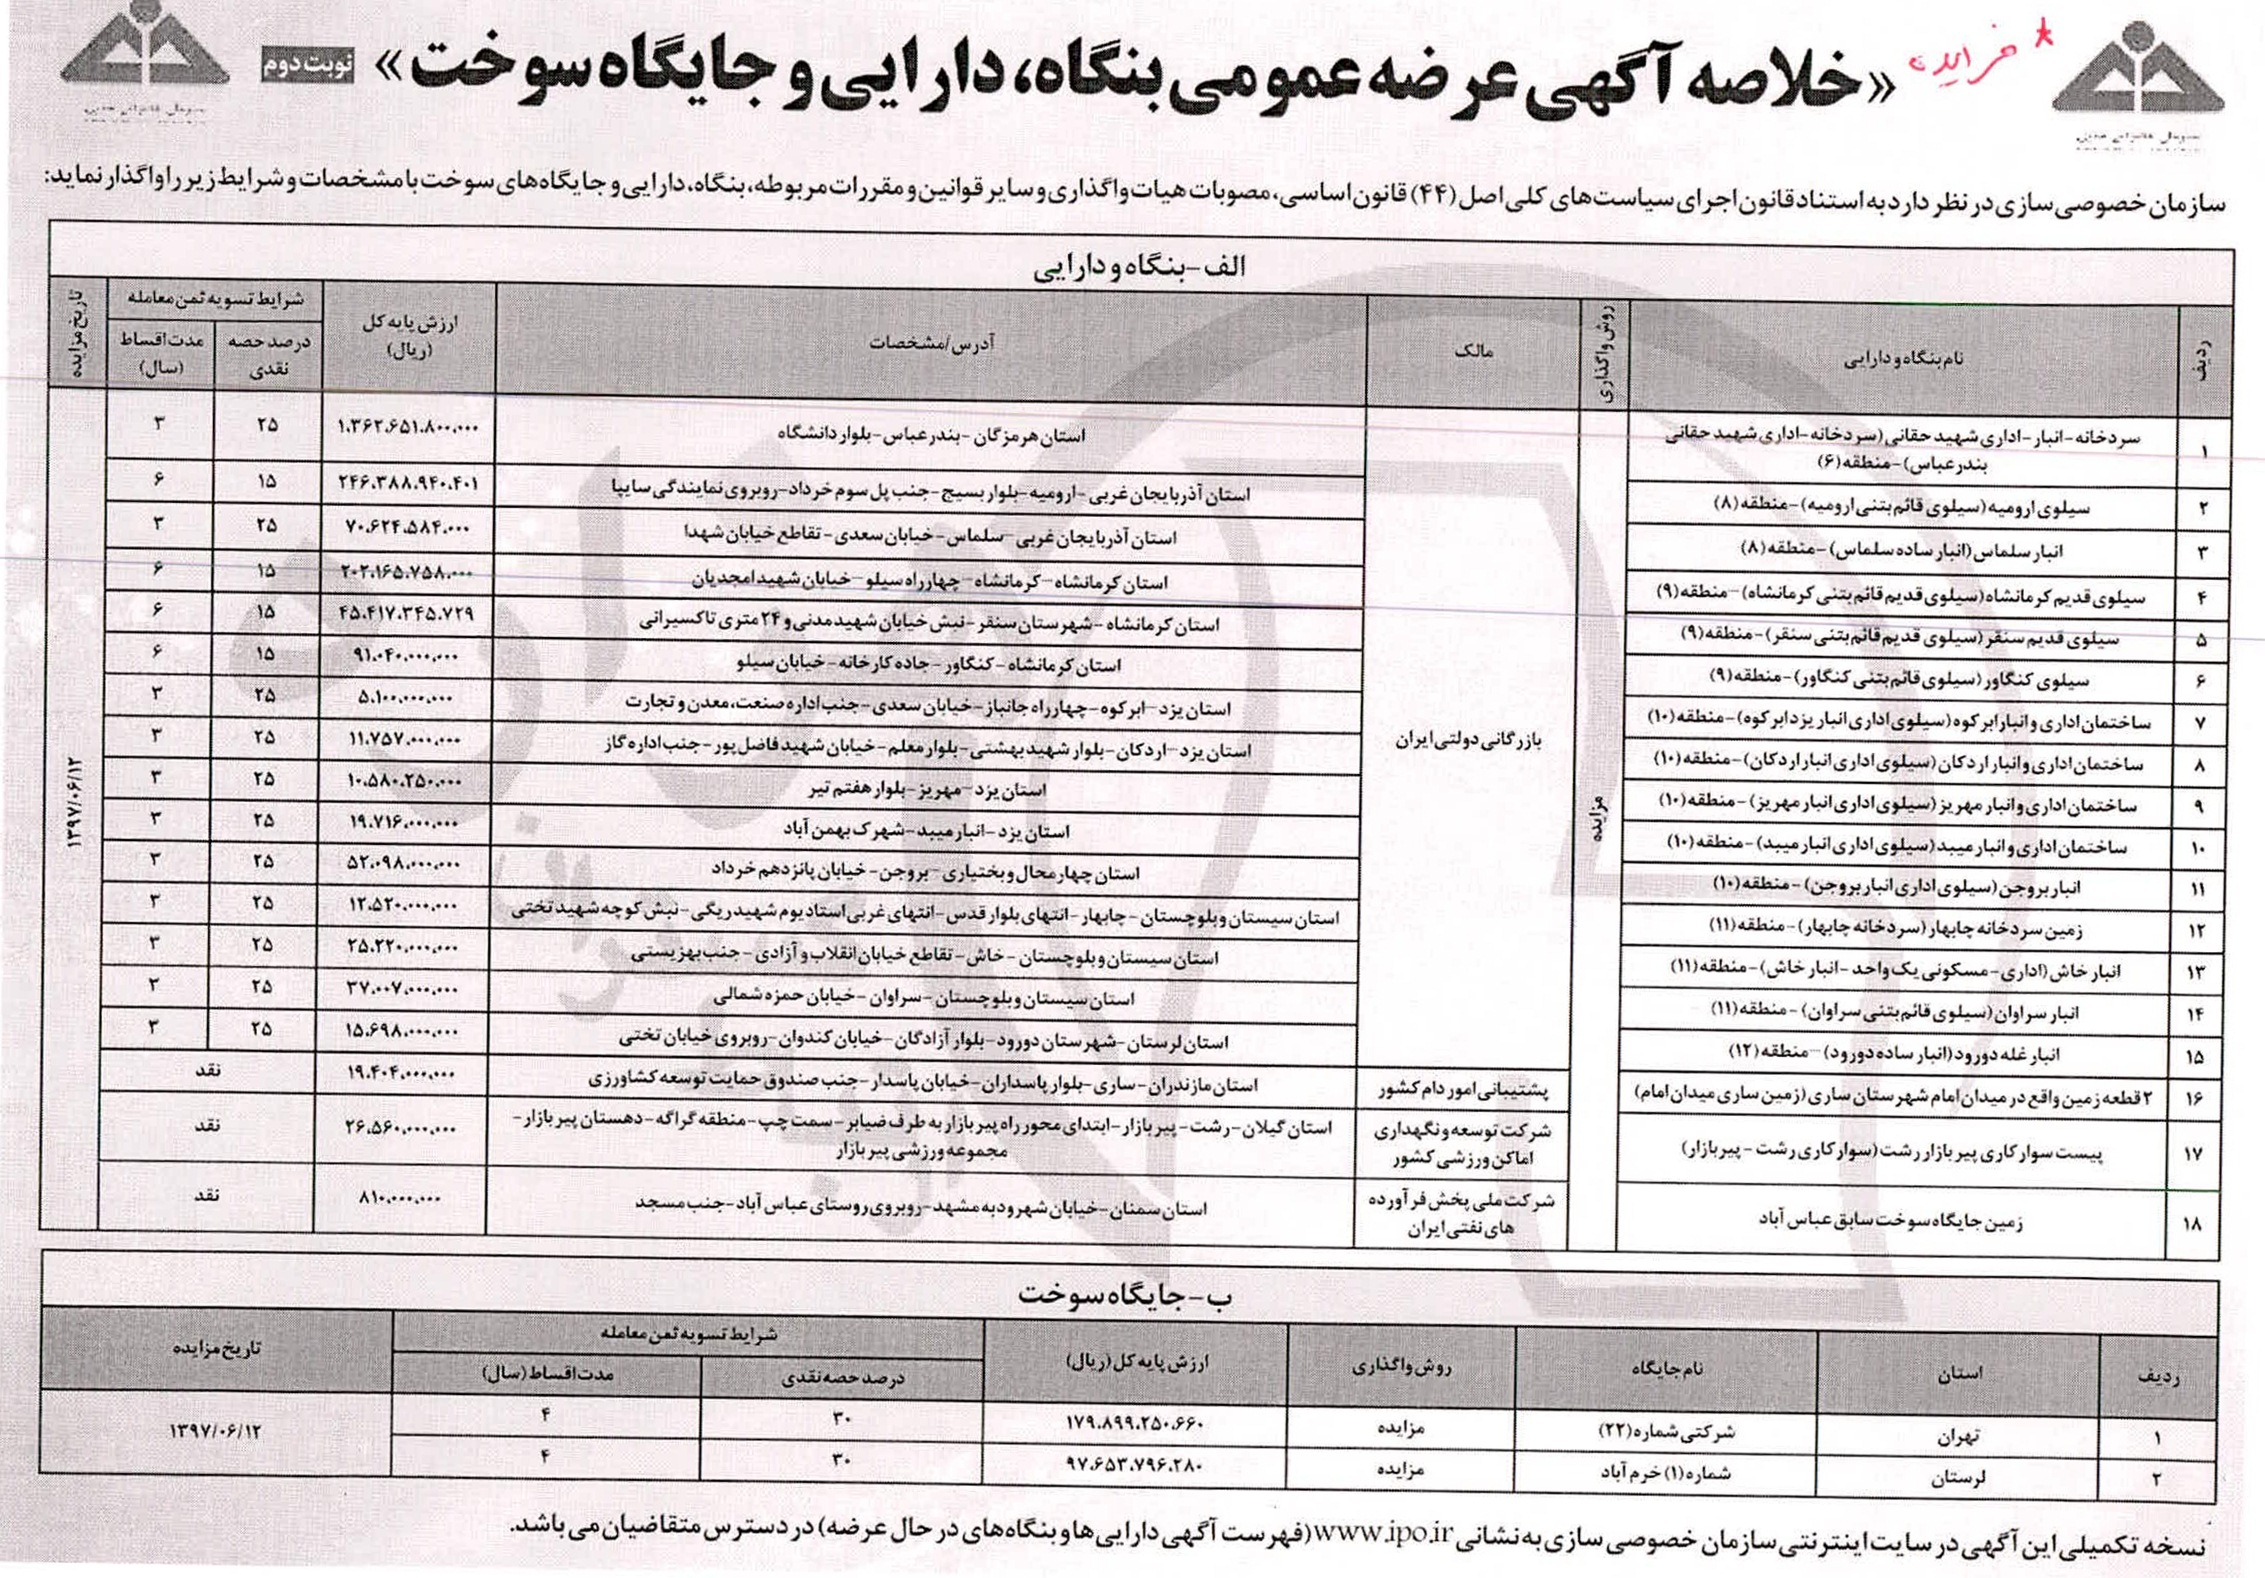 * مزایده
«خلاصه آگهی عرضه عمومی بنگاه، دارایی و جایگاه سوخت»
نوبت دوم
سازمان خصوصی سازی در نظر دارد به استناد قانون اجرای سیاست‌های کلی اصل (۴۴) قانون اساسی، مصوبات هیات واگذاری و سایر قوانین و مقررات مربوطه، بنگاه، دارایی و جایگاه‌های سوخت با مشخصات و شرایط زیر را واگذار نماید:
الف-بنگاه و دارایی
ردیف | نام بنگاه و دارایی | روش واگذاری | مالک | آدرس/مشخصات | ارزش پایه کل (ریال) | شرایط تسویه ثمن معامله | درصد حصه نقدی | مدت اقساط (سال) | تاریخ مزایده
۱ | سردخانه-انبار-اداری شهید حقانی (سردخانه-اداری شهید حقانی بندرعباس)-منطقه (۶) | استان هرمزگان-بندرعباس-بلوار دانشگاه | ۱،۳۶۲،۶۵۱،۸۰۰،۰۰۰ | ۲۵ | ۳
۲ | سیلوی ارومیه (سیلوی قائم بتنی ارومیه)-منطقه (۸) | استان آذربایجان غربی-ارومیه-بلوار بسیج-جنب پل سوم خرداد-روبروی نمایندگی سایپا | ۲۴۶،۳۸۸،۹۴۰،۴۰۱ | ۱۵ | ۶
۳ | انبار سلماس (انبار ساده سلماس)-منطقه (۸) | استان آذربایجان غربی-سلماس-خیابان سعدی-تقاطع خیابان شهدا | ۷۰،۶۲۴،۵۸۴،۰۰۰ | ۲۵ | ۳
۴ | سیلوی قدیم کرمانشاه (سیلوی قدیم قائم بتنی کرمانشاه)-منطقه (۹) | استان کرمانشاه-کرمانشاه-چهارراه سیلو-خیابان شهید امجدیان | ۲۰۲،۱۶۵،۷۵۸،۰۰۰ | ۱۵ | ۶
۵ | سیلوی قدیم سنقر (سیلوی قدیم قائم بتنی سنقر)-منطقه (۹) | استان کرمانشاه-شهرستان سنقر-نبش خیابان شهید مدنی و ۲۴ متری تاکسیرانی | ۴۵،۴۱۷،۳۴۵،۷۲۹ | ۱۵ | ۶
۶ | سیلوی کنگاور (سیلوی قائم بتنی کنگاور)-منطقه (۹) | استان کرمانشاه-کنگاور-جاده کارخانه-خیابان سیلو | ۹۱،۰۴۰،۰۰۰،۰۰۰ | ۱۵ | ۶
۷ | ساختمان اداری و انبار ابرکوه (سیلوی اداری انبار یزد ابرکوه)-منطقه (۱۰) | استان یزد-ابرکوه-چهارراه جانباز-خیابان سعدی-جنب اداره صنعت، معدن و تجارت | ۵،۱۰۰،۰۰۰،۰۰۰ | ۲۵ | ۳
۸ | ساختمان اداری و انبار اردکان (سیلوی اداری انبار اردکان)-منطقه (۱۰) | استان یزد-اردکان-بلوار شهید بهشتی-بلوار معلم-خیابان شهید فاضل پور-جنب اداره گاز | ۱۱،۷۵۷،۰۰۰،۰۰۰ | ۲۵ | ۳
۹ | ساختمان اداری و انبار مهریز (سیلوی اداری انبار مهریز)-منطقه (۱۰) | استان یزد-مهریز-بلوار هفتم تیر | ۱۰،۵۸۰،۲۵۰،۰۰۰ | ۲۵ | ۳
۱۰ | ساختمان اداری و انبار میبد (سیلوی اداری انبار میبد)-منطقه (۱۰) | استان یزد-انبار میبد-شهرک بهمن آباد | ۱۹،۷۱۶،۰۰۰،۰۰۰ | ۲۵ | ۳
۱۱ | انبار بروجن (سیلوی اداری انبار بروجن)-منطقه (۱۰) | استان چهارمحال و بختیاری-بروجن-خیابان پانزدهم خرداد | ۵۲،۰۹۸،۰۰۰،۰۰۰ | ۲۵ | ۳
۱۲ | زمین سردخانه چابهار (سردخانه چابهار)-منطقه (۱۱) | استان سیستان و بلوچستان-چابهار-انتهای بلوار قدس-انتهای غربی استادیوم شهید ریگی-نبش کوچه شهید تختی | ۱۲،۵۲۰،۰۰۰،۰۰۰ | ۲۵ | ۳
۱۳ | انبار خاش (اداری-مسکونی یک واحد-انبار خاش)-منطقه (۱۱) | استان سیستان و بلوچستان-خاش-تقاطع خیابان انقلاب و آزادی-جنب بهزیستی | ۲۵،۲۲۰،۰۰۰،۰۰۰ | ۲۵ | ۳
۱۴ | انبار سراوان (سیلوی قائم بتنی سراوان)-منطقه (۱۱) | استان سیستان و بلوچستان-سراوان-خیابان حمزه شمالی | ۳۷،۰۰۷،۰۰۰،۰۰۰ | ۲۵ | ۳
۱۵ | انبار غله دورود (انبار ساده دورود)-منطقه (۱۲) | استان لرستان-شهرستان دورود-بلوار آزادگان-خیابان کندوان-روبروی خیابان تختی | ۱۵،۶۹۸،۰۰۰،۰۰۰ | ۲۵ | ۳
بازرگانی دولتی ایران
مزایده
۱۳۹۷/۰۶/۱۲
۱۶ | ۲ قطعه زمین واقع در میدان امام شهرستان ساری (زمین ساری میدان امام) | پشتیبانی امور دام کشور | استان مازندران-ساری-بلوار پاسداران-خیابان پاسدار-جنب صندوق حمایت توسعه کشاورزی | ۱۹،۴۰۴،۰۰۰،۰۰۰ | نقد
۱۷ | پیست سوارکاری پیربازار رشت (سوارکاری رشت-پیربازار) | شرکت توسعه و نگهداری اماکن ورزشی کشور | استان گیلان-رشت-پیربازار-ابتدای محور راه پیربازار به طرف ضیابر-سمت چپ-منطقه گراگه-دهستان پیربازار-مجموعه ورزشی پیربازار | ۲۶،۵۶۰،۰۰۰،۰۰۰ | نقد
۱۸ | زمین جایگاه سوخت سابق عباس آباد | شرکت ملی پخش فرآورده های نفتی ایران | استان سمنان-خیابان شهرود به مشهد-روبروی روستای عباس آباد-جنب مسجد | ۸۱۰،۰۰۰،۰۰۰ | نقد
ب-جایگاه سوخت
ردیف | استان | نام جایگاه | روش واگذاری | ارزش پایه کل (ریال) | شرایط تسویه ثمن معامله | درصد حصه نقدی | مدت اقساط (سال) | تاریخ مزایده
۱ | تهران | شرکتی شماره (۲۲) | مزایده | ۱۷۹،۸۹۹،۲۵۰،۶۶۰ | ۳۰ | ۴ | ۱۳۹۷/۰۶/۱۲
۲ | لرستان | شماره (۱) خرم آباد | مزایده | ۹۷،۶۵۳،۷۹۶،۲۸۰ | ۳۰ | ۴
نسخه تکمیلی این آگهی در سایت اینترنتی سازمان خصوصی سازی به نشانی www.ipo.ir (فهرست آگهی دارایی‌ها و بنگاه‌های در حال عرضه) در دسترس متقاضیان می باشد.